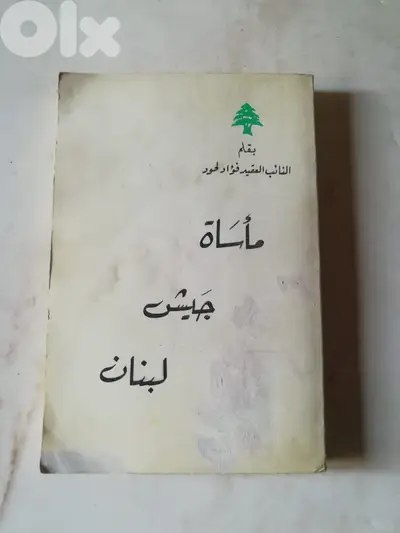 OLX
بقلم
النائب العقيد فؤاد لحود
مأساة
جيش
لبنان